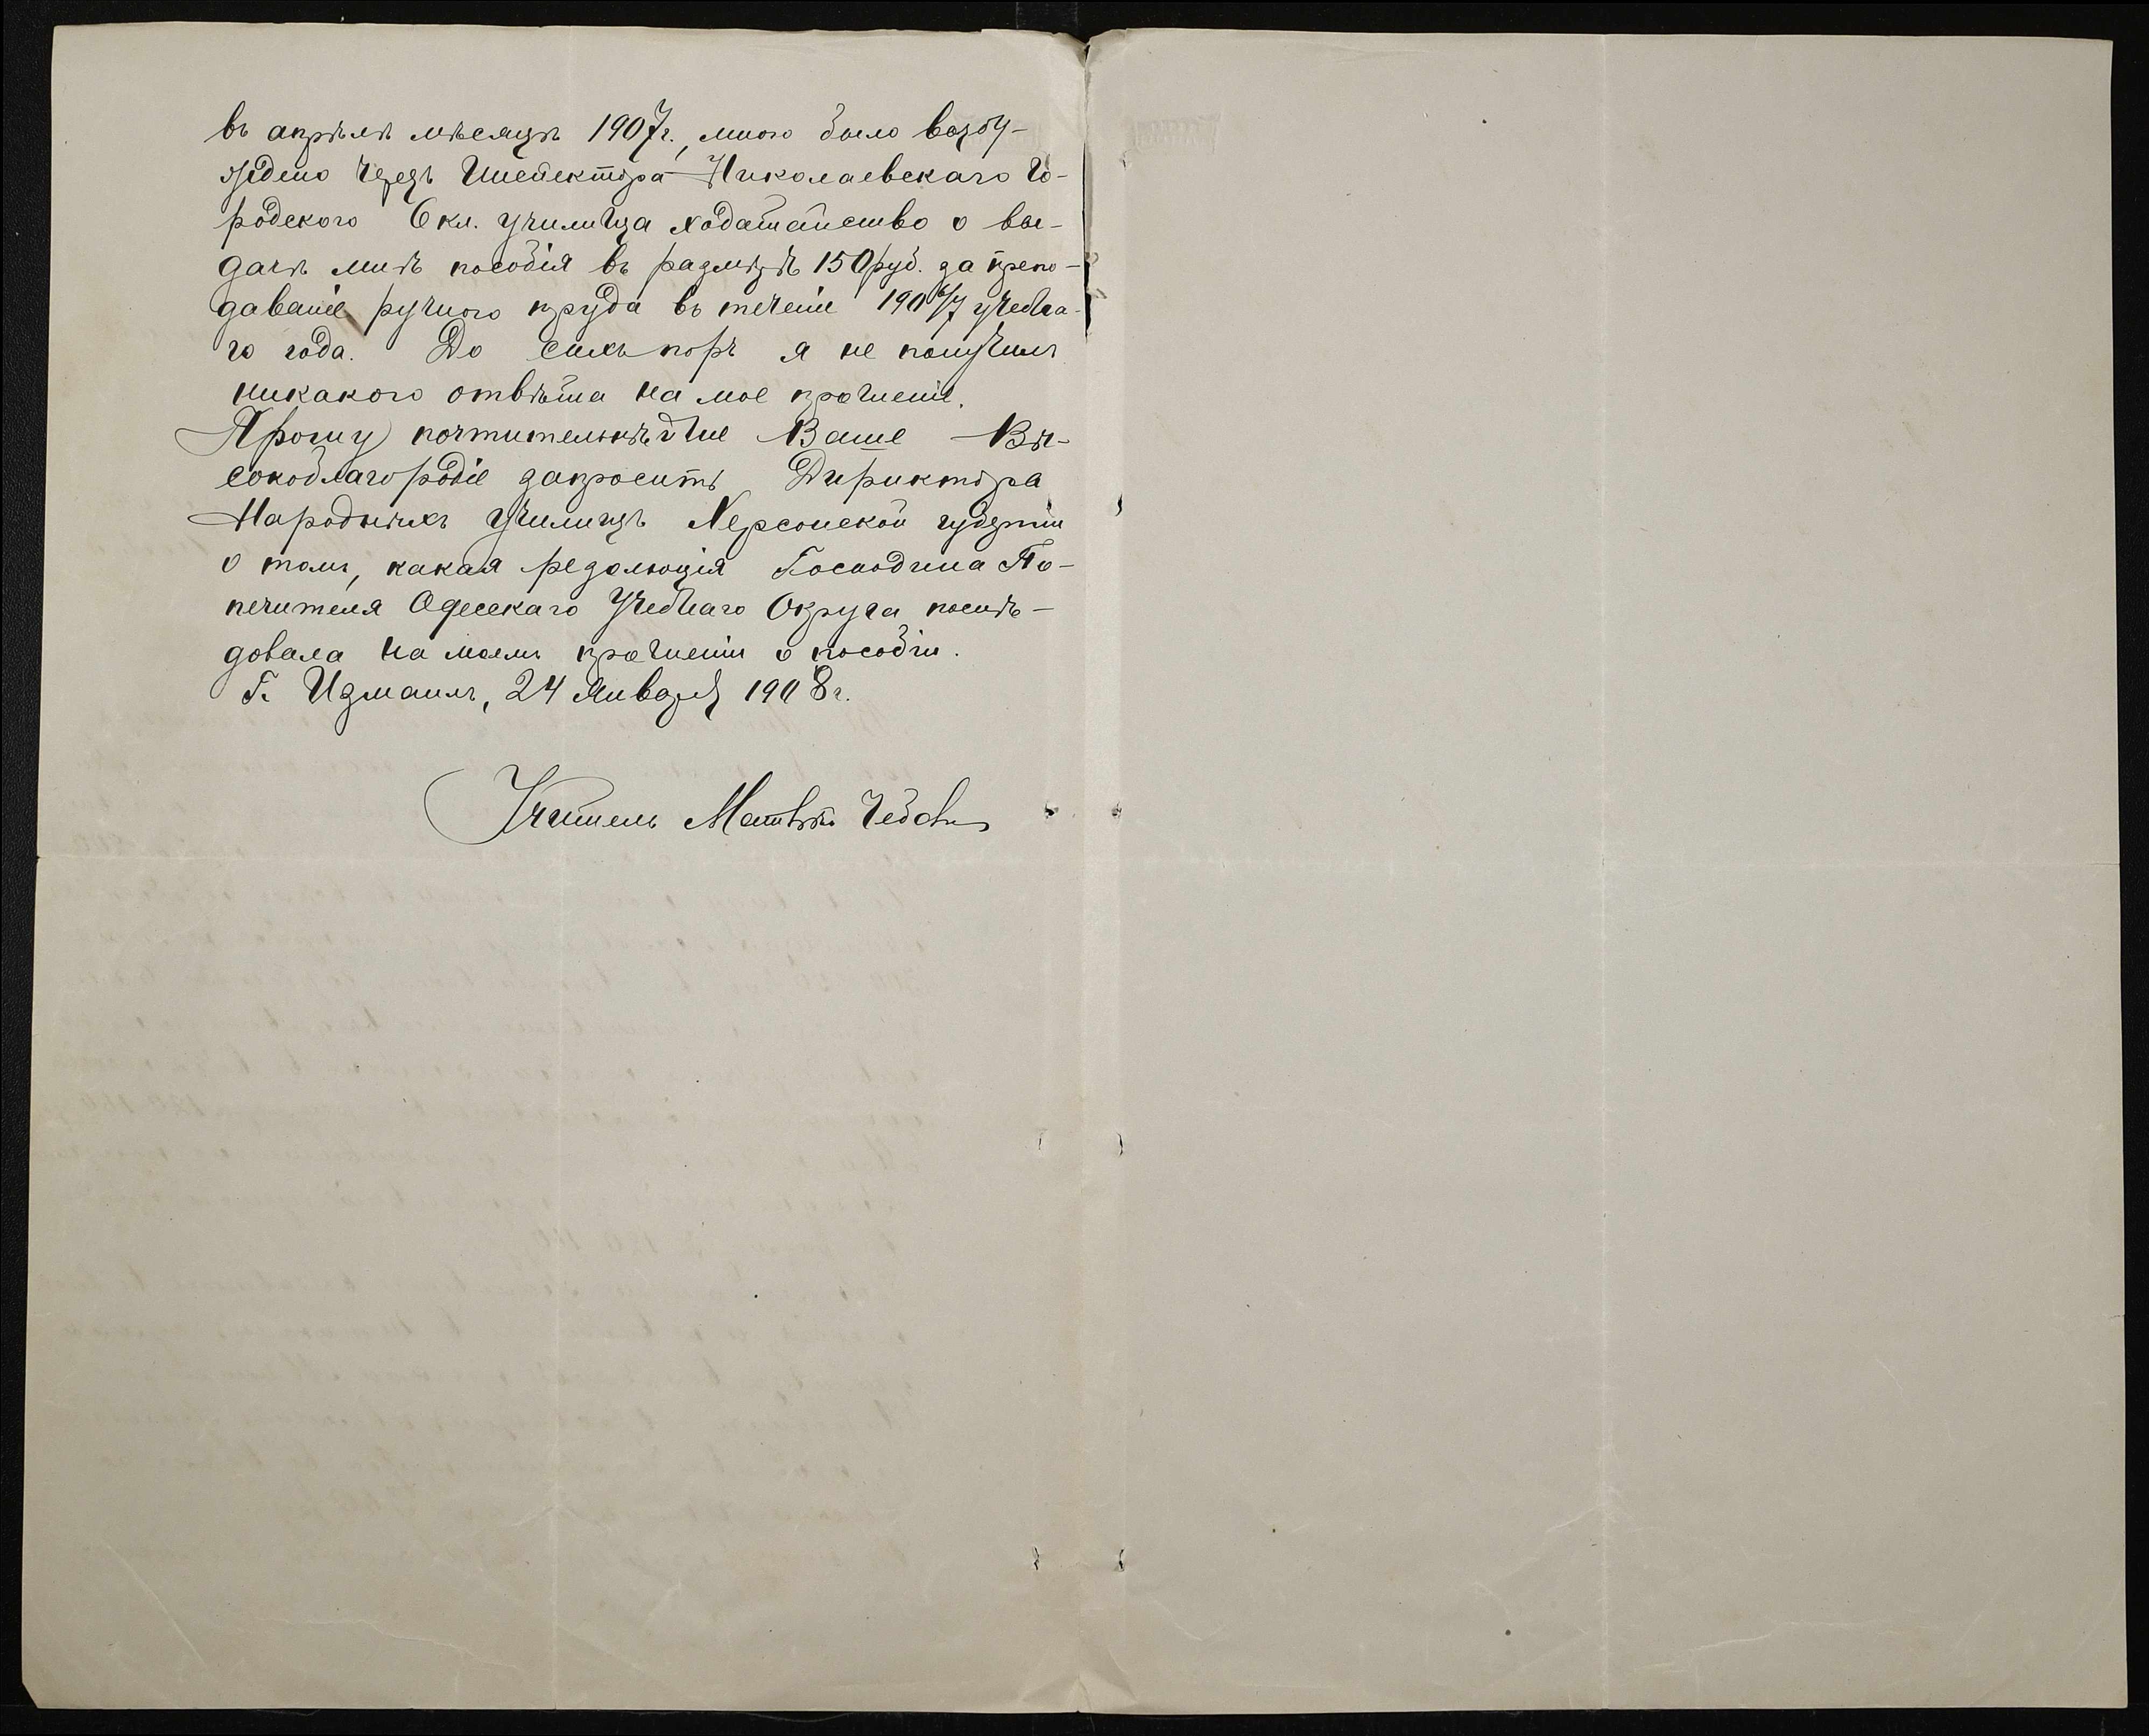 въ апрѣлѣ мѣсяцѣ 1907г., мною было возбу-
ждено чрезъ Инспектора Николаевскаго го-
родского 6 кл. училища ходатайство о вы-
дачѣ мнѣ пособія въ размѣрѣ 150 руб. за препо-
даваніе ручного труда въ теченіе 1906/7 учебна-
го года. До сихъ поръ я не получилъ
никакого отвѣта на мое прошеніе.
Прошу почтительнѣйше Ваше Вы-
сокоблагородіе запросить Дириктора
Народныхъ училищъ Херсонской губерніи
о томъ, какая резолюція Господина По-
печителя Одесскаго Учебнаго Округа послѣ-
довала на моемъ прошеніи о пособіи.
Г. Измаилъ, 24 Января 1908 г.
Учитель Матвѣй